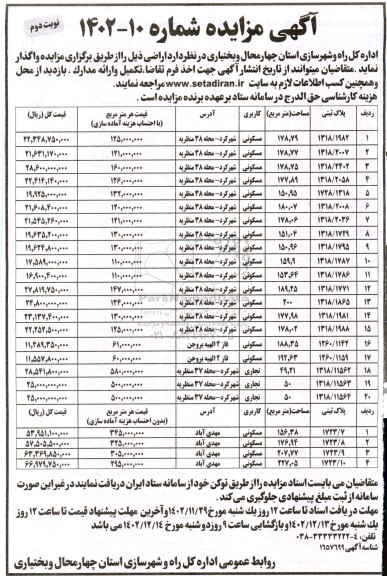 آگهی مزایده شماره ۱۰-۱۴۰۲
نوبت دوم
اداره کل راه و شهرسازی استان چهارمحال وبختیاری در نظر دارد اراضی ذیل را از طریق برگزاری مزایده واگذار
نماید. متقاضیان میتوانند از تاریخ انتشار آگهی جهت اخذ فرم تقاضا، تکمیل وارائه مدارک، بازدید از محل
وهمچنین کسب اطلاعات لازم به سایت www.setadiran.ir مراجعه نمایند.
هزینه کارشناسی حق الدرج در سامانه ستاد بر عهده برنده مزایده است.
ردیف پلاک ثبتی مساحت(متر مربع) کاربری آدرس قیمت هر متر مربع (با احتساب هزینه آماده سازی) قیمت کل (ریال)
۱ ۱۳۱۸/۱۹۸۲ ۱۷۸,۷۹ مسکونی شهرکرد-محله ۳۸ منظریه ۱۲۵,۰۰۰,۰۰۰ ۲۲,۳۴۸,۷۵۰,۰۰۰
۲ ۱۳۱۸/۲۰۰۷ ۱۷۸,۷۷ مسکونی شهرکرد-محله ۳۸ منظریه ۱۲۱,۰۰۰,۰۰۰ ۲۱,۶۳۱,۱۷۰,۰۰۰
۳ ۱۳۱۸/۲۴۰۲ ۱۷۸,۷۵ مسکونی شهرکرد-محله ۳۸ منظریه ۱۶۰,۰۰۰,۰۰۰ ۲۸,۶۰۰,۰۰۰,۰۰۰
۴ ۱۳۱۸/۲۰۵۸ ۱۷۷,۸۹ مسکونی شهرکرد-محله ۳۸ منظریه ۱۲۶,۰۰۰,۰۰۰ ۲۲,۴۱۴,۱۴۰,۰۰۰
۵ ۱۷۲۸/۱۳۱۸ ۱۵۰,۹۵ مسکونی شهرکرد-محله ۳۸ منظریه ۱۳۲,۰۰۰,۰۰۰ ۱۹,۹۲۵,۰۰۰,۰۰۰
۶ ۱۳۱۸/۲۰۰۸ ۱۸۰,۰۷ مسکونی شهرکرد-محله ۳۸ منظریه ۱۲۰,۰۰۰,۰۰۰ ۲۱,۶۰۸,۴۰۰,۰۰۰
۷ ۱۳۱۸/۲۰۳۶ ۱۷۸,۰۶ مسکونی شهرکرد-محله ۳۸ منظریه ۱۲۱,۰۰۰,۰۰۰ ۲۱,۵۴۵,۲۶۰,۰۰۰
۸ ۱۳۱۸/۱۷۲۹ ۱۵۱,۰۴ مسکونی شهرکرد-محله ۳۸ منظریه ۱۳۰,۰۰۰,۰۰۰ ۱۹,۶۳۵,۲۰۰,۰۰۰
۹ ۱۳۱۸/۱۷۹۵ ۱۵۰,۹۶ مسکونی شهرکرد-محله ۳۸ منظریه ۱۳۰,۰۰۰,۰۰۰ ۱۹,۶۲۴,۸۰۰,۰۰۰
۱۰ ۱۳۱۸/۱۷۸۷ ۱۵۹,۹ مسکونی شهرکرد-محله ۳۸ منظریه ۱۱۰,۰۰۰,۰۰۰ ۱۷,۵۸۹,۰۰۰,۰۰۰
۱۱ ۱۳۱۸/۱۷۸۶ ۱۵۳,۶۴ مسکونی شهرکرد-محله ۳۸ منظریه ۱۱۰,۰۰۰,۰۰۰ ۱۶,۹۰۰,۴۰۰,۰۰۰
۱۲ ۱۳۱۸/۱۷۷۱ ۱۸۹,۲۵ مسکونی شهرکرد-محله ۳۸ منظریه ۱۴۷,۰۰۰,۰۰۰ ۲۷,۸۱۹,۷۵۰,۰۰۰
۱۳ ۱۳۱۸/۱۸۶۵ ۲۰۰ مسکونی شهرکرد-محله ۳۸ منظریه ۱۲۴,۰۰۰,۰۰۰ ۲۴,۸۰۰,۰۰۰,۰۰۰
۱۴ ۱۳۱۸/۱۹۸۱ ۱۷۷,۹۸ مسکونی شهرکرد-محله ۳۸ منظریه ۱۳۰,۰۰۰,۰۰۰ ۲۳,۱۳۷,۴۰۰,۰۰۰
۱۵ ۱۳۱۸/۱۹۸۸ ۱۷۸,۰۲ مسکونی شهرکرد-محله ۳۸ منظریه ۱۲۵,۰۰۰,۰۰۰ ۲۲,۲۵۲,۵۰۰,۰۰۰
۱۶ ۱۲۶۰/۱۱۴۲ ۱۸۸,۳۵ مسکونی فاز ۲ الهیه بروجن ۶۱,۰۰۰,۰۰۰ ۱۱,۴۸۹,۳۵۰,۰۰۰
۱۷ ۱۲۶۰/۱۱۵۹ ۱۹۲,۶۳ مسکونی فاز ۲ الهیه بروجن ۶۰,۰۰۰,۰۰۰ ۱۱,۵۵۷,۸۰۰,۰۰۰
۱۸ ۱۳۱۸/۱۱۵۶۲ ۴۹,۲۱ تجاری شهرکرد-محله ۳۷ منظریه ۵۸۰,۰۰۰,۰۰۰ ۲۸,۵۴۱,۸۰۰,۰۰۰
۱۹ ۱۳۱۸/۱۱۵۶۳ ۵۰ تجاری شهرکرد-محله ۳۷ منظریه ۵۰۰,۰۰۰,۰۰۰ ۲۵,۰۰۰,۰۰۰,۰۰۰
۲۰ ۱۳۱۸/۱۱۵۶۴ ۵۰ تجاری شهرکرد-محله ۳۷ منظریه ۵۰۰,۰۰۰,۰۰۰ ۲۵,۰۰۰,۰۰۰,۰۰۰
ردیف پلاک ثبتی مساحت(متر مربع) کاربری آدرس قیمت هر متر مربع (بدون احتساب هزینه آماده سازی) قیمت کل (ریال)
۱ ۱۷۲۳/۷ ۱۵۶,۳۸ مسکونی مهدی آباد ۳۴۵,۰۰۰,۰۰۰ ۵۳,۹۵۱,۱۰۰,۰۰۰
۲ ۱۷۲۳/۸ ۱۷۶,۹۴ مسکونی مهدی آباد ۳۲۵,۰۰۰,۰۰۰ ۵۷,۵۰۵,۵۰۰,۰۰۰
۳ ۱۷۲۳/۹ ۲۰۷,۷۷ مسکونی مهدی آباد ۳۰۵,۰۰۰,۰۰۰ ۶۳,۳۶۹,۸۵۰,۰۰۰
۴ ۱۷۲۳/۱۰ ۲۲۷,۰۵ مسکونی مهدی آباد ۲۹۵,۰۰۰,۰۰۰ ۶۶,۹۷۹,۷۵۰,۰۰۰
متقاضیان می بایست اسناد مزایده را از طریق توکن خود از سامانه ستاد ایران دریافت نمایند در غیر این صورت
سامانه از ثبت مبلغ پیشنهادی جلوگیری می کند.
مهلت دریافت اسناد تا ساعت ۱۲ روز یک شنبه مورخ ۱۴۰۲/۱۱/۲۹ و آخرین مهلت پیشنهاد قیمت تا ساعت ۱۲ روز
یک شنبه مورخ ۱۴۰۲/۱۲/۱۳ و بازگشایی ساعت ۹ روز دو شنبه مورخ ۱۴۰۲/۱۲/۱۴ می باشد
تلفن: ۴-۳۳۳۳۳۲۲۲-۰۳۸
شناسه آگهی ۱۶۵۷۶۹۹
روابط عمومی اداره کل راه و شهرسازی استان چهارمحال وبختیاری